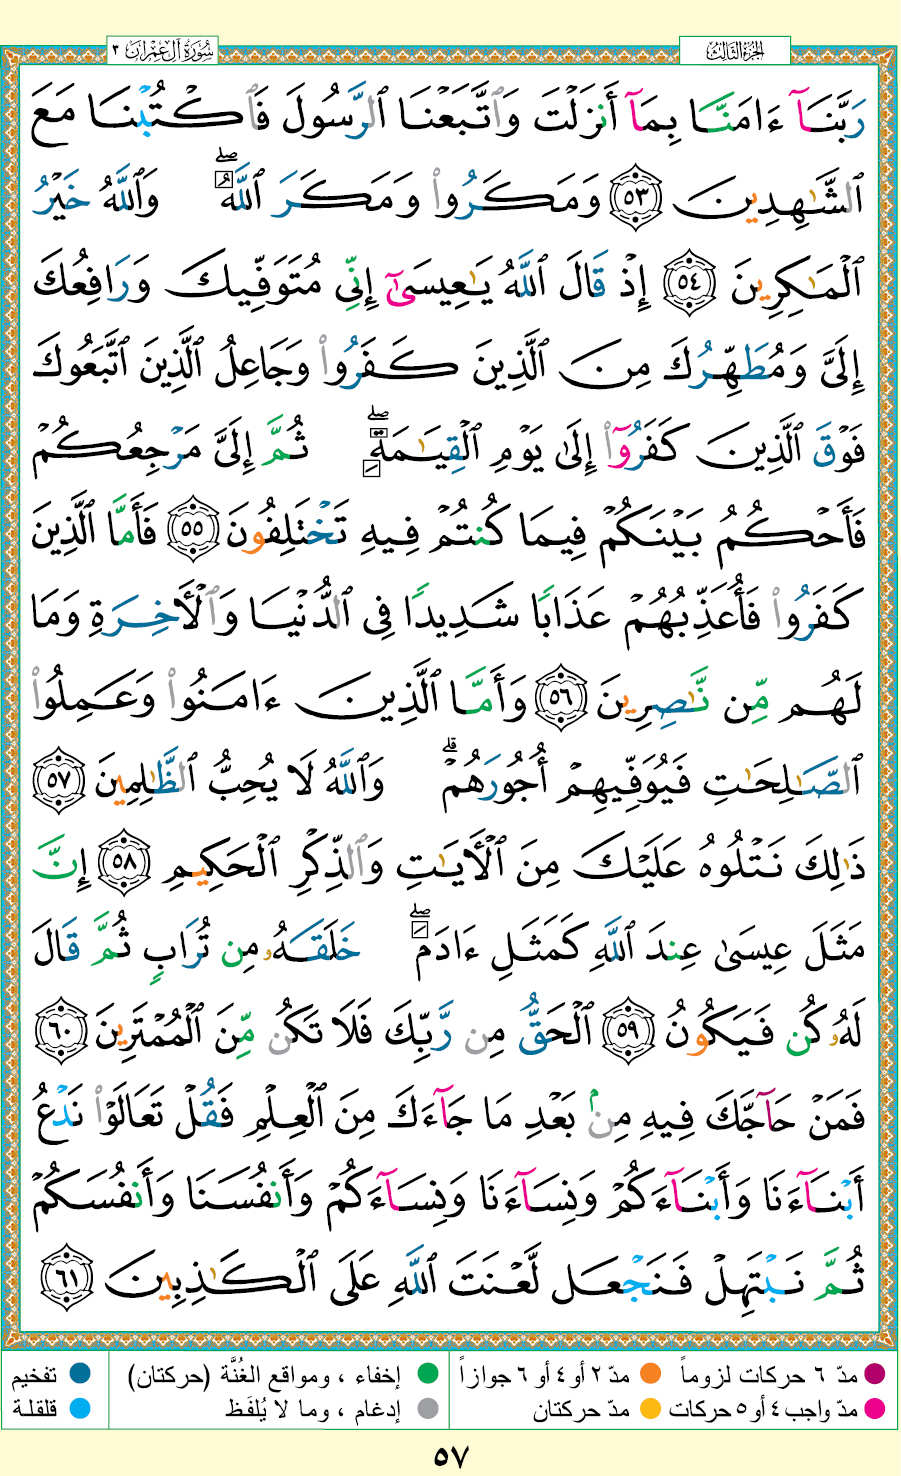 سُورَةُ آلِ عِمْرَان ٣
الجُزءُ الثَّالِثُ
رَبَّنَآ ءَامَنَّا بِمَآ أَنزَلْتَ وَٱتَّبَعْنَا ٱلرَّسُولَ فَٱكْتُبْنَا مَعَ
ٱلشَّٰهِدِينَ ٥٣ وَمَكَرُوا۟ وَمَكَرَ ٱللَّهُ ۖ وَٱللَّهُ خَيْرُ
ٱلْمَٰكِرِينَ ٥٤ إِذْ قَالَ ٱللَّهُ يَٰعِيسَىٰٓ إِنِّى مُتَوَفِّيكَ وَرَافِعُكَ
إِلَىَّ وَمُطَهِّرُكَ مِنَ ٱلَّذِينَ كَفَرُوا۟ وَجَاعِلُ ٱلَّذِينَ ٱتَّبَعُوكَ
فَوْقَ ٱلَّذِينَ كَفَرُوٓا۟ إِلَىٰ يَوْمِ ٱلْقِيَٰمَةِ ۖ ثُمَّ إِلَىَّ مَرْجِعُكُمْ
فَأَحْكُمُ بَيْنَكُمْ فِيمَا كُنتُمْ فِيهِ تَخْتَلِفُونَ ٥٥ فَأَمَّا ٱلَّذِينَ
كَفَرُوا۟ فَأُعَذِّبُهُمْ عَذَابًا شَدِيدًا فِى ٱلدُّنْيَا وَٱلْأَخِرَةِ وَمَا
لَهُم مِّن نَّٰصِرِينَ ٥٦ وَأَمَّا ٱلَّذِينَ ءَامَنُوا۟ وَعَمِلُوا۟
ٱلصَّٰلِحَٰتِ فَيُوَفِّيهِمْ أُجُورَهُمْ ۗ وَٱللَّهُ لَا يُحِبُّ ٱلظَّٰلِمِينَ ٥٧
ذَٰلِكَ نَتْلُوهُ عَلَيْكَ مِنَ ٱلْأَيَٰتِ وَٱلذِّكْرِ ٱلْحَكِيمِ ٥٨ إِنَّ
مَثَلَ عِيسَىٰ عِندَ ٱللَّهِ كَمَثَلِ ءَادَمَ ۖ خَلَقَهُۥ مِن تُرَابٍ ثُمَّ قَالَ
لَهُۥ كُن فَيَكُونُ ٥٩ ٱلْحَقُّ مِن رَّبِّكَ فَلَا تَكُن مِّنَ ٱلْمُمْتَرِينَ ٦٠
فَمَنْ حَآجَّكَ فِيهِ مِنۢ بَعْدِ مَا جَآءَكَ مِنَ ٱلْعِلْمِ فَقُلْ تَعَالَوْا۟ نَدْعُ
أَبْنَآءَنَا وَأَبْنَآءَكُمْ وَنِسَآءَنَا وَنِسَآءَكُمْ وَأَنفُسَنَا وَأَنفُسَكُمْ
ثُمَّ نَبْتَهِلْ فَنَجْعَل لَّعْنَتَ ٱللَّهِ عَلَى ٱلْكَٰذِبِينَ ٦١
مدّ ٦ حركات لزوماً مدّ ٢ أو ٤ أو ٦ جوازاً إخفاء ، ومواقع الغُنَّة (حركتان) تفخيم
مدّ واجب ٤ أو ٥ حركات مدّ حركتان إدغام ، وما لا يُلفَظ قلقلة
٥٧